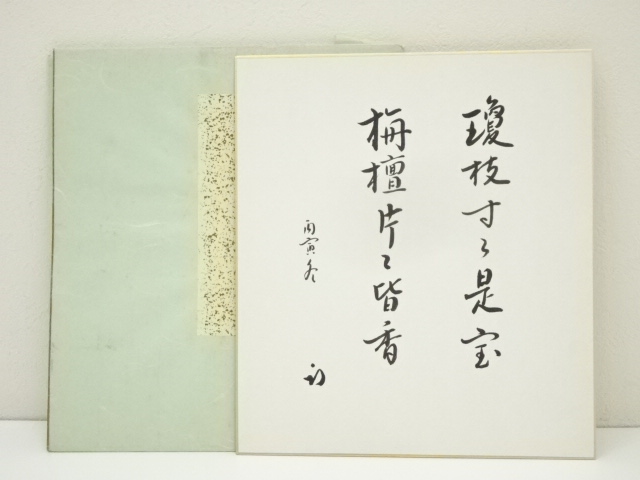 瓊枝寸々是宝
栴檀片々皆香
丙寅冬